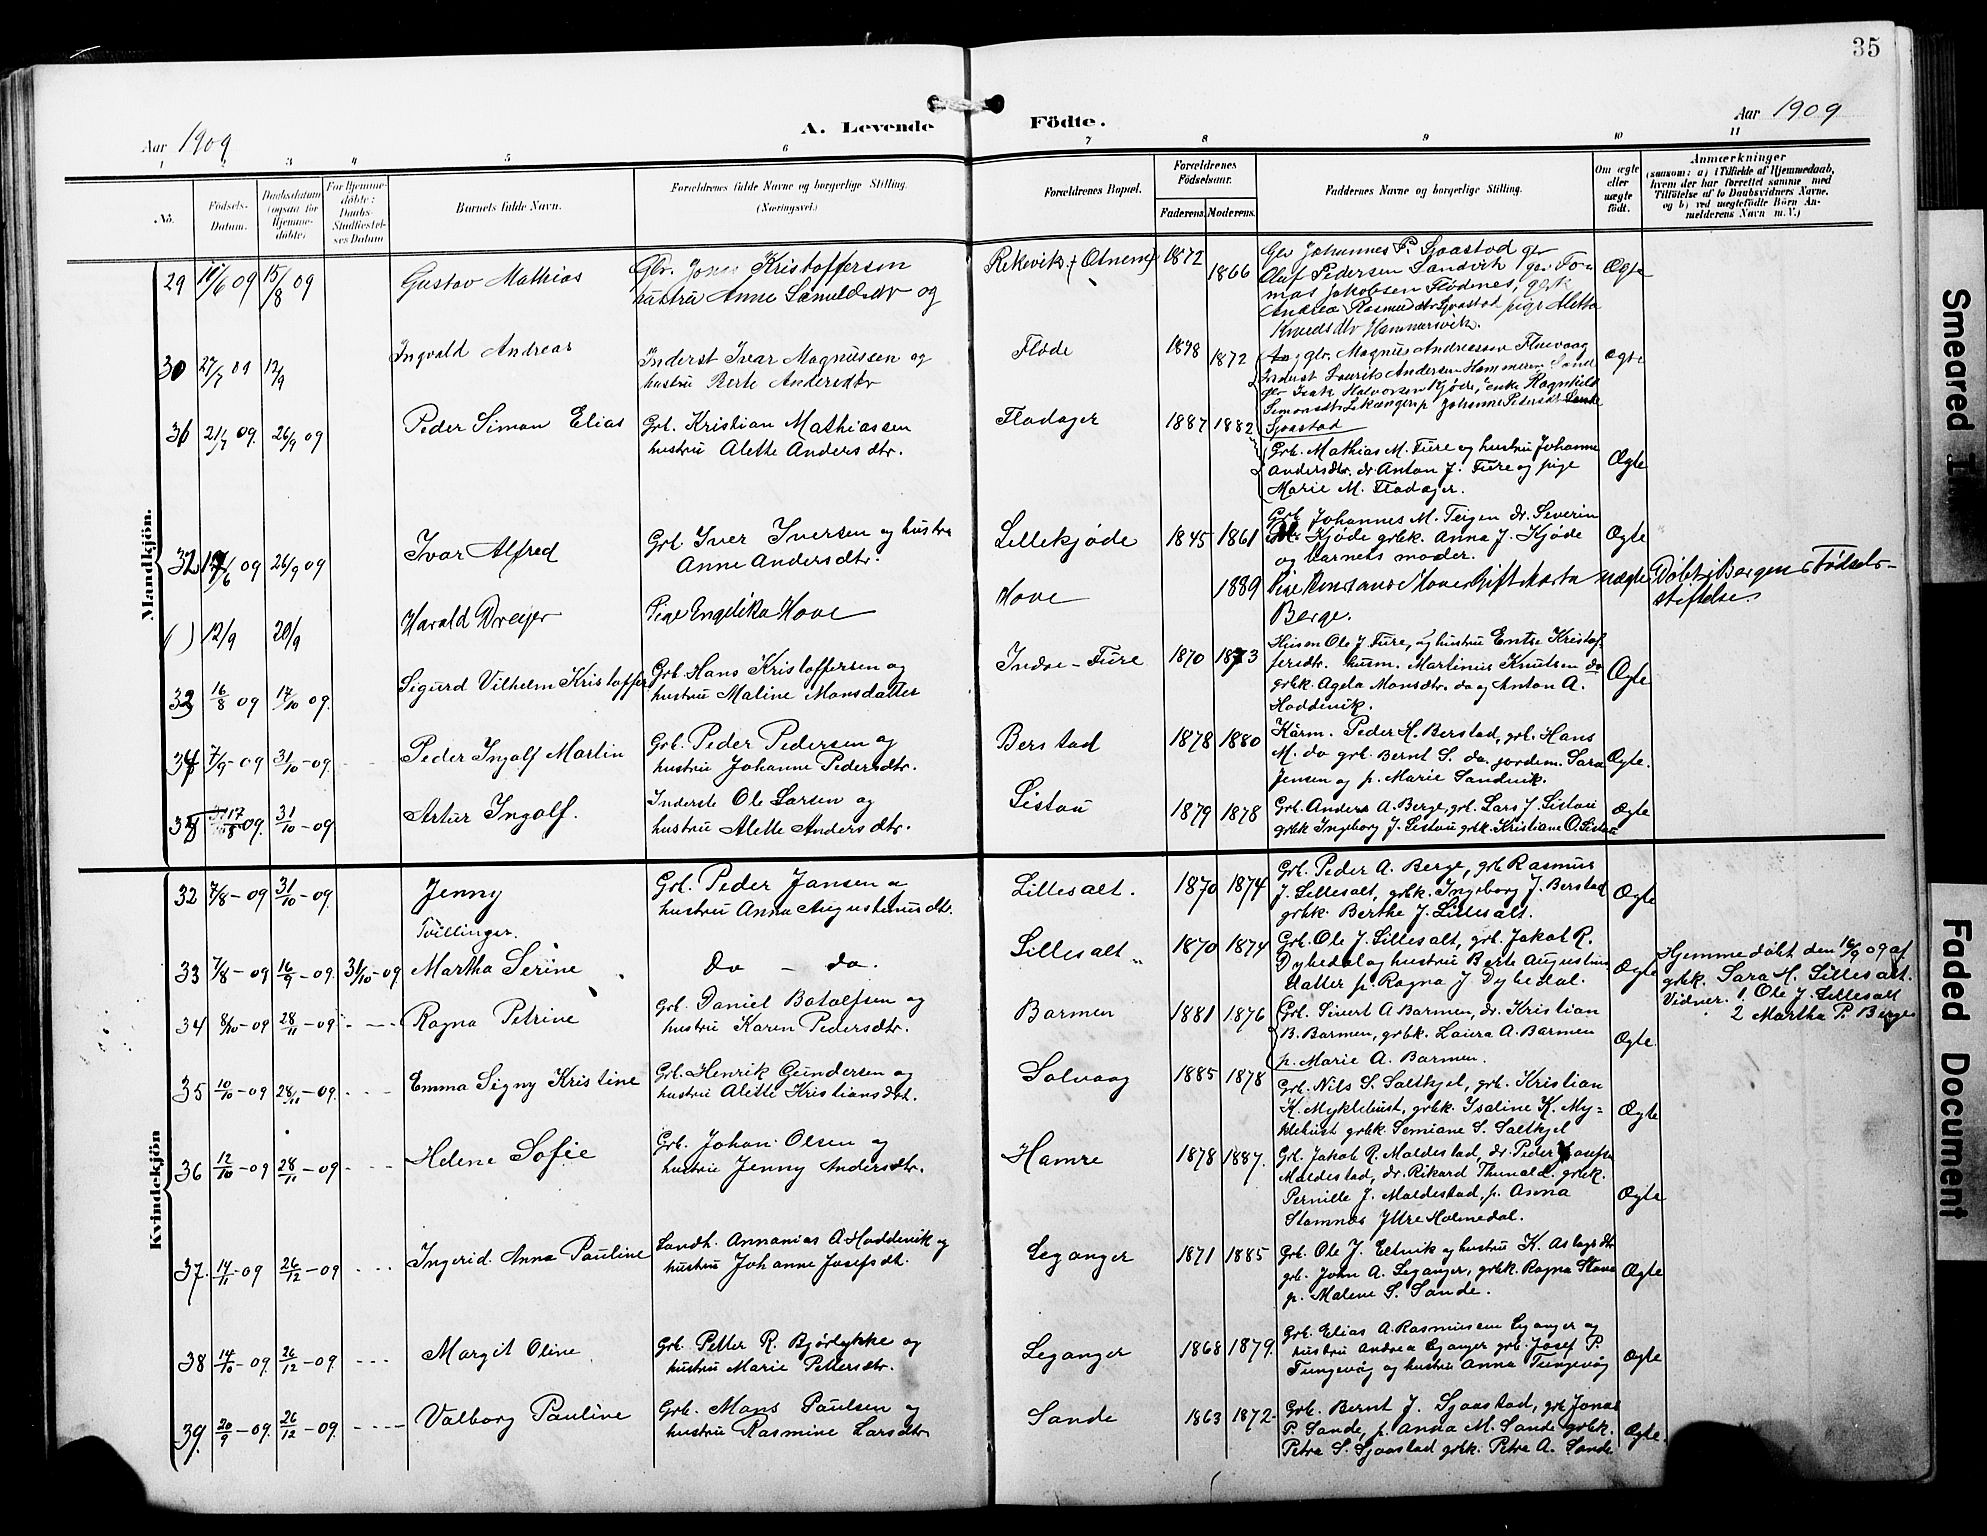 35
Aar 1909
A. Levende Födte.
Aar 1909
1 2 3 4 5 6 7 8 9 10 11
No.
Födsels-
Datum.
Daabsdatum
(ogsaa for
Hjemme-
döbte)
For Hjemme-
döbte:
Daabs-
Stadfæstel-
ses Datum
Barnets fulde Navn.
Forældrenes fulde Navne og borgerlige Stilling.
(Næringsvei.)
Forældrenes Bopæl.
Forældrenes
Födselsaar.
Faderens. Moderens.
Faddernes Navne og borgerlige Stilling.
Om ægte
eller
uægte
födt.
Anmærkninger
(saasom: a) i Tilfælde af Hjemmedaab,
hvem der har forrettet samme, med
Tilföielse af to Daabsvidners Navne,
og b) ved uægtefödte Börn An-
melderens Navn m. V.)
Mandkjön.
29 11/6 09 15/8 09 Gustav Mathias
Kristoffersen
hustru Anne og
Rekevik 1872 1866
Johannes P. Sjaastad
Oluf Pedersen Sandvik
Jakobsen Flödenes,
Andrea Sjaastad pige Alette
Hammersvik.
Ægte
30 27/7 09 12/9 Ingvald Andreas
Inderst Ivar Magnussen og
hustru Berte Andersdtr
Flöde 1878 1872
Magnus Andreassen
Inderst Laurits Andersen
Halvorsen Kjöde, enke Ragnhild
Johanne Pedersdt
Sjaastad
Ægte
21/7 09. 26/9 09 Peder Simon Elias
Grb. Kristian Mathiassen
hustru Alette Andersdtr.
Fladager 1887 1882
Grb. Mathias M. Fure og hustru Johanne
Andersdtr. dr. Anton J. Fure og pige
Marie M. Fladager.
Ægte
32 26/9 09 Ivar Alfred
Grb. Iver Iversen og hustru
Anne Andersdtr.
Lillekjöde 1845 1861
Grb. Johannes M. Teigen dr. Severin
M. Kjöde grbk. Anna J. Kjöde
og barnets moder.
Ægte
( ) 12/9 20/9 Harald Dreyer
Pige Engelika Hove
Hove 1889
Pige Konstanse Hove
Berge.
uægte
Döbt i Bergens Födsels-
stiftelse
33 16/8 09 17/10 09. Sigurd Vilhelm Kristoffer
Grb. Hans Kristoffersen og
hustru Maline Monsdatter
Indre-Fure 1870 1873
Husm Ole J. Fure, og hustru Kristof-
fersdtr. husm. Martinus Knutsen do
grbk. Monsdtr. do og Anton A.
Hoddevik.
Ægte
34 7/9-09 31/10-09. Peder Ingolf Martin
Grb. Peder Pedersen og
hustru Johanne Pedersdtr.
Berstad 1878 1880
Kårm. Peder H. Berstad, grb. Hans
M. do grb. Bernt S. do. jordem. Sara
Jensen og p. Marie Sandvik.
Ægte.
31/10-09 Artur Ingolf.
Inderste Ole Larsen og
hustru Alette Andersdtr.
Listou 1879 1878
Grb. Anders A. Berge, grb. Lars J. Listou
grbk Ingeborg J. Listou grbk. Kristiane O. Listou
Ægte
Kvindekjön
32 7/8-09 31/10-09. Jenny
Tvillinger.
Grb. Peder Jansen og
hustru Anna Augustinusdtr.
Lillesalt. 1870 1874
Grb. Peder A. Berge, grb. Rasmus
J. Lillesalt, grbk. Ingeborg J. Berstad
grbk. Berthe J. Lillesalt.
Ægte
33 7/8-09 16/9-09. 31/10-09. Martha Serine
Do - do.
Lillesalt 1870 1874
Grb. Ole J. Lillesalt, grb. Jakob R.
Dybedal og hustru Berte Augustinus
datter p. Ragna J. Dybedal.
Ægte
Hjemmedöbt den 16/9 09 af
grbk. Sara M. Lillesalt.
Vidner. 1. Ole J. Lillesalt
2 Martha P. Berge
34 8/10-09 28/11-09 Ragna Petrine
Grb. Daniel Botolfsen og
hustru Karen Pedersdtr.
Barmen 1881 1876
Grb. Sivert A Barmen, dr. Kristian
B. Barmen, grbk. Laura A. Barmen
p. Marie A. Barmen.
Ægte.
35 10/10-09 28/11-09. Emma Signy Kristine
Grb. Henrik Gundersen og
hustru Alette Kristiansdt.
Salvaag 1885 1878
Grb. Nils S. Saltkjel, grb. Kristian
K. Myklebust, grbk. Isaline K. My=
klebust grbk. Semiane S. Saltkjel
Ægte
36 12/10-09 28/11-09 Helene Sofie
Grb. Johan Olsen og
hustru Jenny Andersdtr.
Hamre 1878 1887.
Grb. Jakob R. Maldestad, dr. Peder
Maldestad, dr. Rikard grbk.
Pernille J. Maldestad, p. Anna
Stamnes Ytre Holmedal.
Ægte
37. 14/11-09 26/12-09 Ingerid Anna Pauline
Landh. Annanias A. Hoddevik og
hustru Johanne Josefsdt.
Leganger 1871 1885
Grb. Ole J. Eltvik og hustru K. Aslagsdtr
grb. John A. Leganger, grbk. Ragna
p. Malene S. Sande.
Ægte
38 14/10-09. 26/12-09 Margit Oline
Grb. Petter R. Bjørlykke og
hustru Marie Pettersdtr.
Leganger 1868 1879.
Grb. Elias A. Rasmussen Leganger og
hustru Andrea Leganger grb. Josef P.
Tungevåg og hustru Anna Tungevåg
Ægte
39. 20/9-09. 26/12-09. Valborg Pauline
Grb. Mons Paulsen og
hustru Rasmine Larsdtr
Sande 1863 1872.
Grb. Bernt J. Sjaastad, grb. Jonas
P. Sande, p. Anna M. Sande grbk.
Petra S. Sjaastad grbk. Petra A. Sande
Ægte.
Smeared
Faded Document